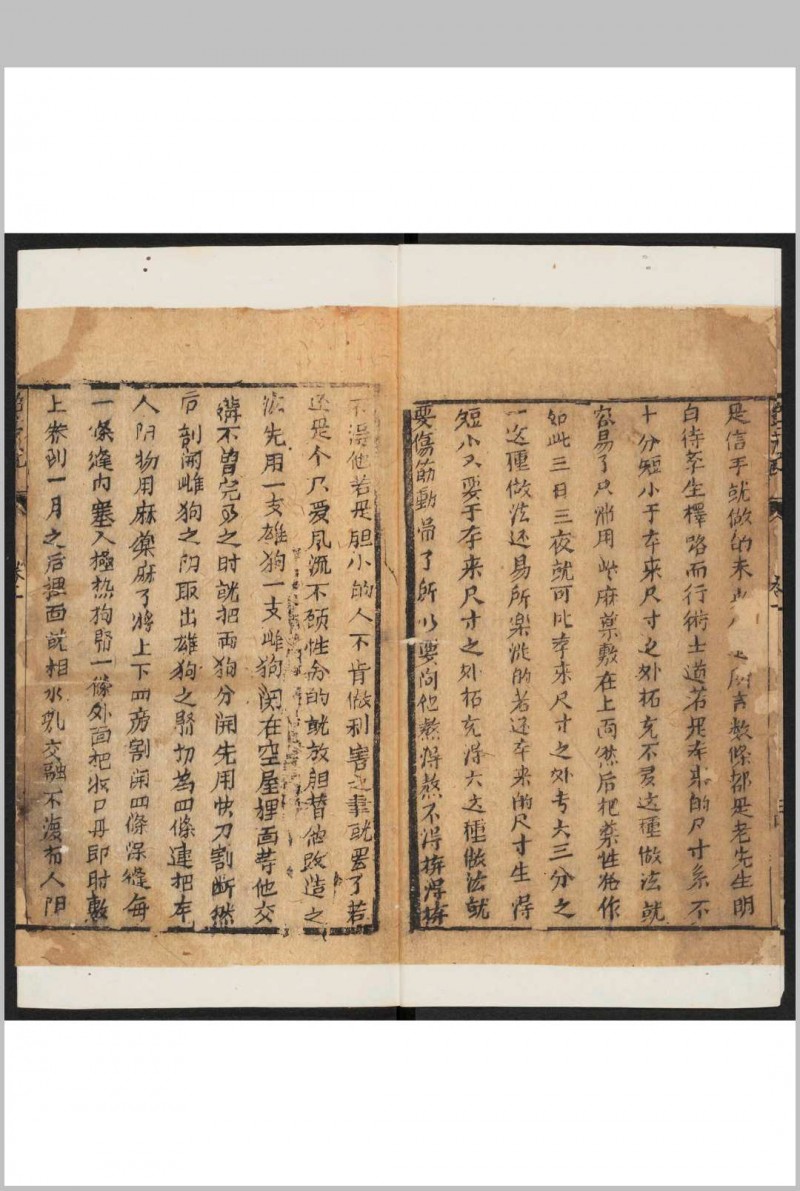 是信手就做的未
言教條都是老先生明
白待辛生擇路而行術士道若是本來的尺寸系不
十分短小于本來尺寸之外拓充不多这種做法就
容易了只消用些麻藥敷在上面然后把藥性發作
如此三日三夜就可比本來尺寸之外夸大三分之
一这種做法还易所樂從的若还本來的尺寸生得
短小又要于本來尺寸之外拓充得大这種做法就
要傷筋動骨了所以要问他熬得熬不得拚得拚
不得他若是胆小的人不肯做利害之事就罢了若
还是个只爱風流不顾性命的就放胆替他改造之
法先用一支雄狗一支雌狗关在空屋裡面等他交
媾不曾完事之时就把两狗分開先用快刀割断然
后剖開雌狗之阴取出雄狗之腎切為四條連把本
人阴物用麻藥麻了將上下四旁割開四條深縫每
一條縫内塞入極热狗腎一條外面把收口丹即时敷
上养到一月之后裡面就相水乳交融不復有人阳